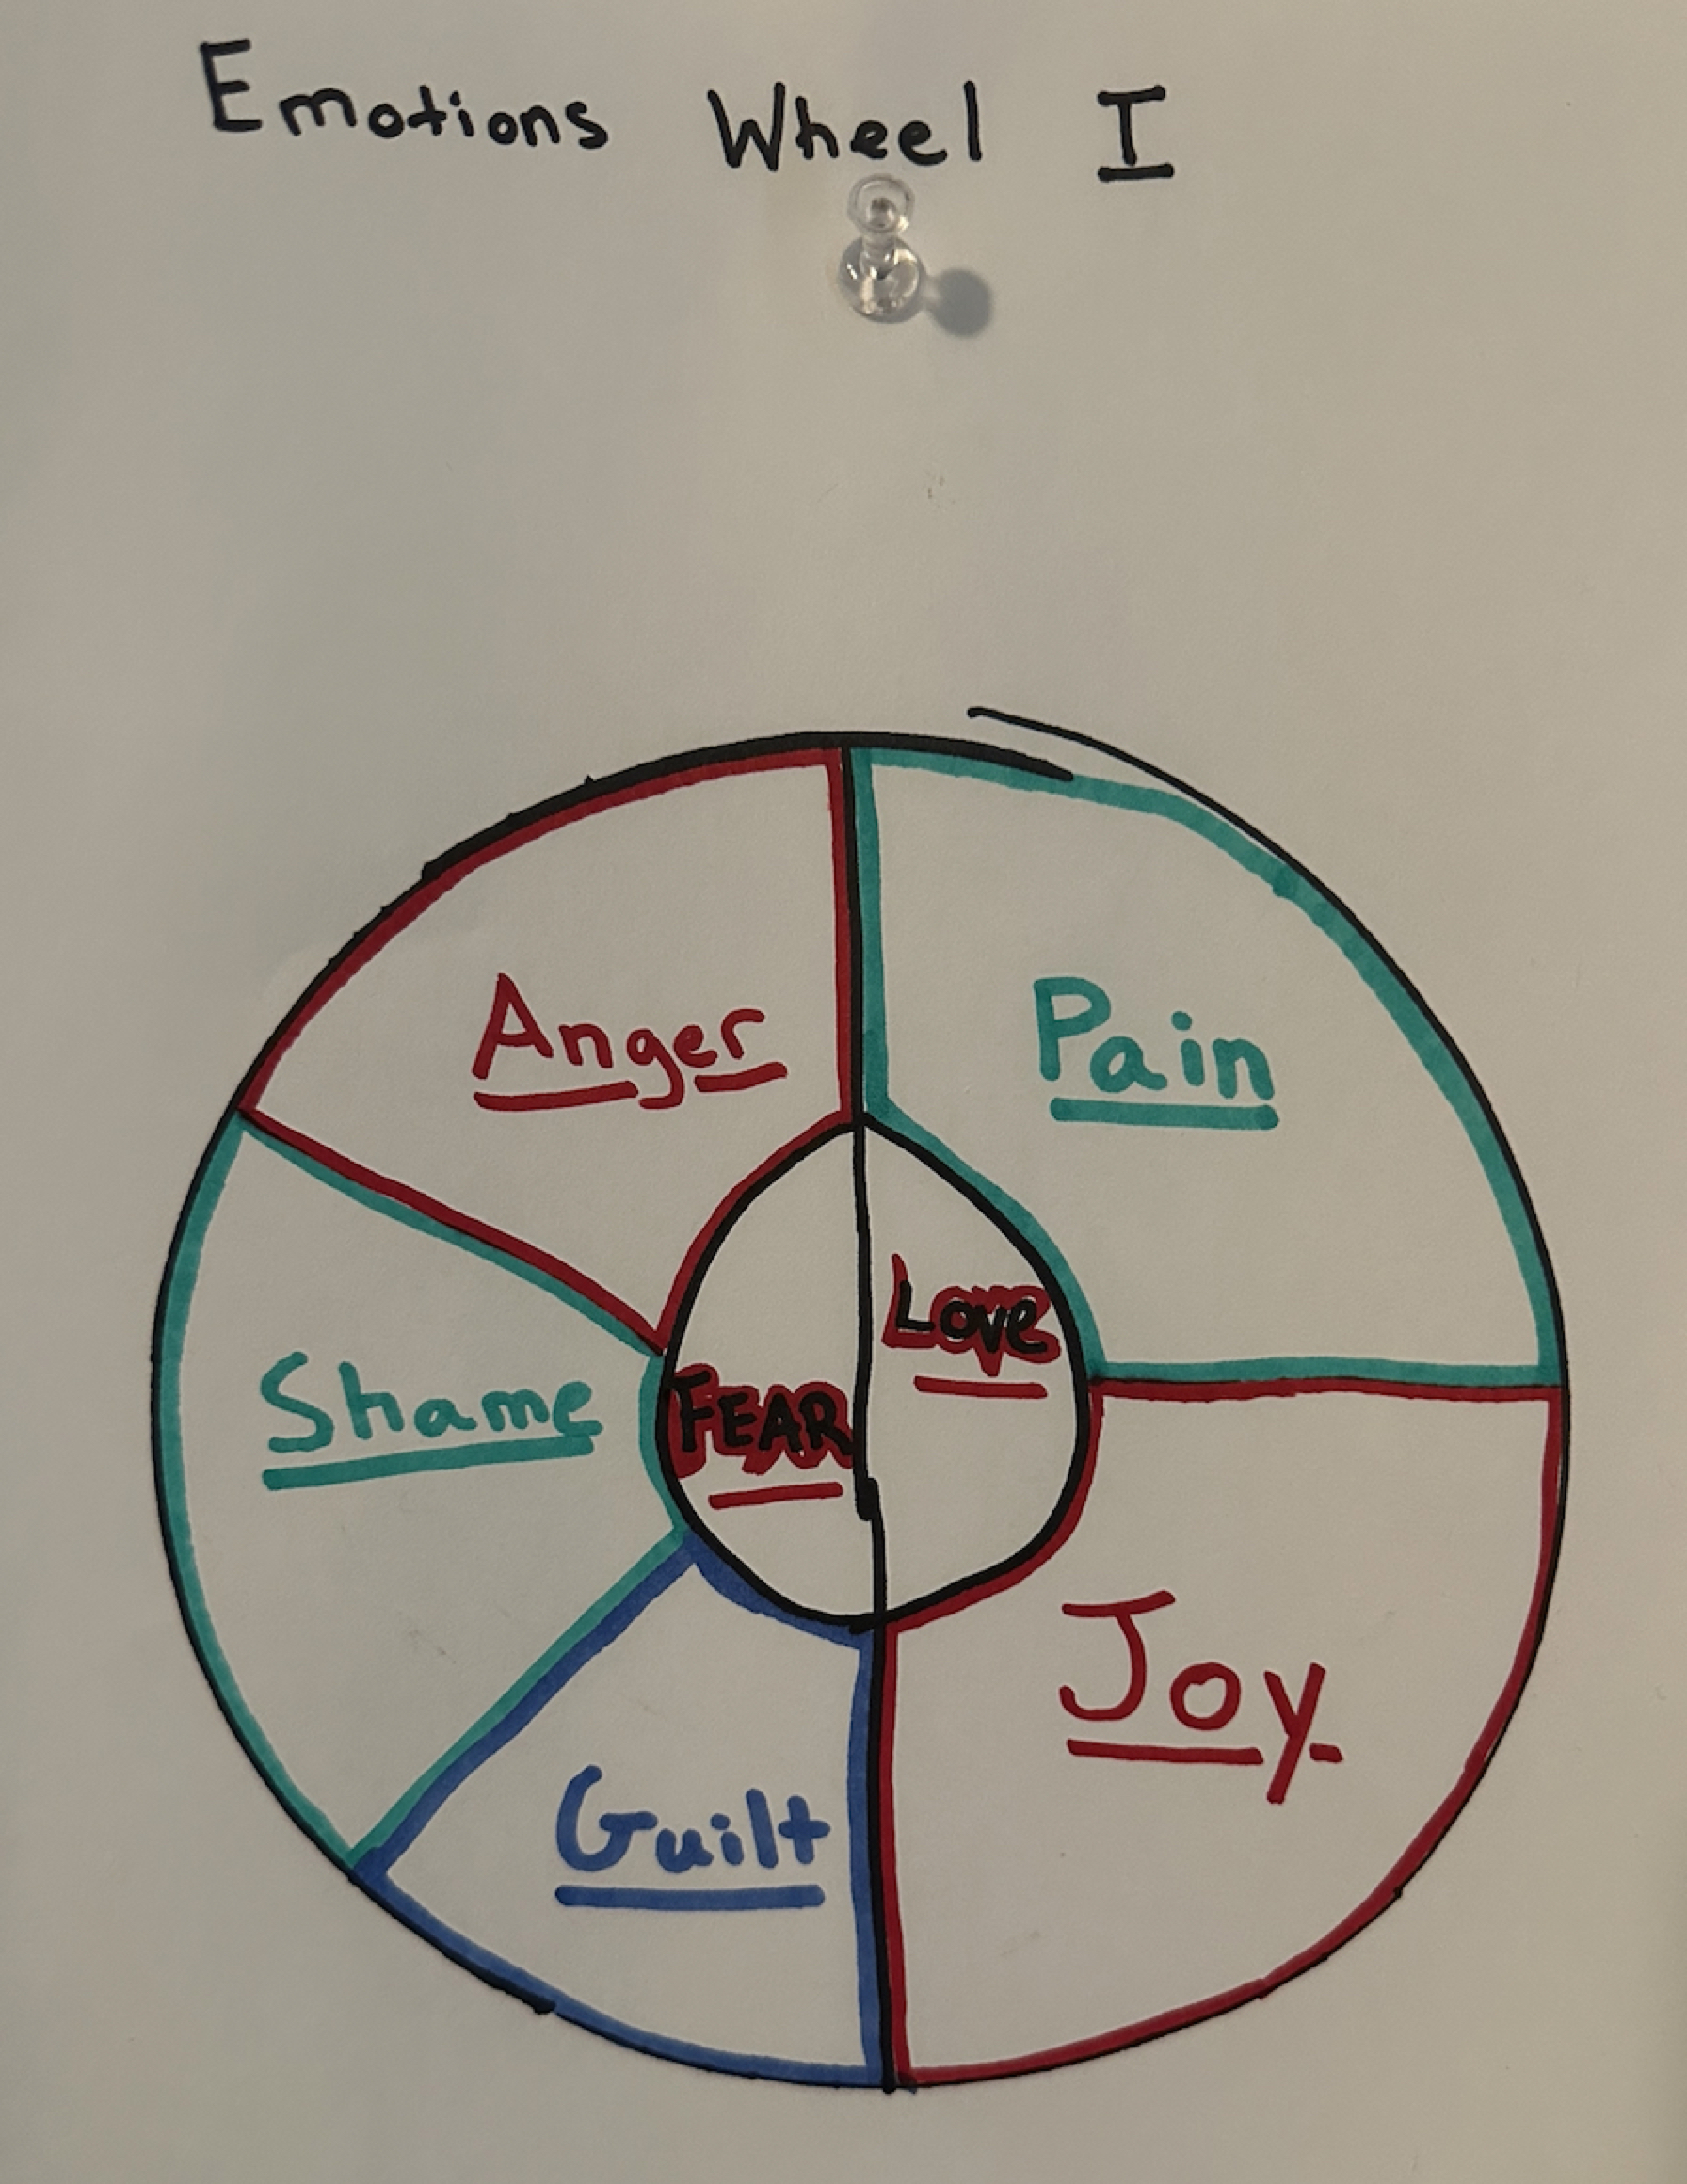 Emotions Wheel I
Anger
Pain
Love
Shame
FEAR
Joy
Guilt